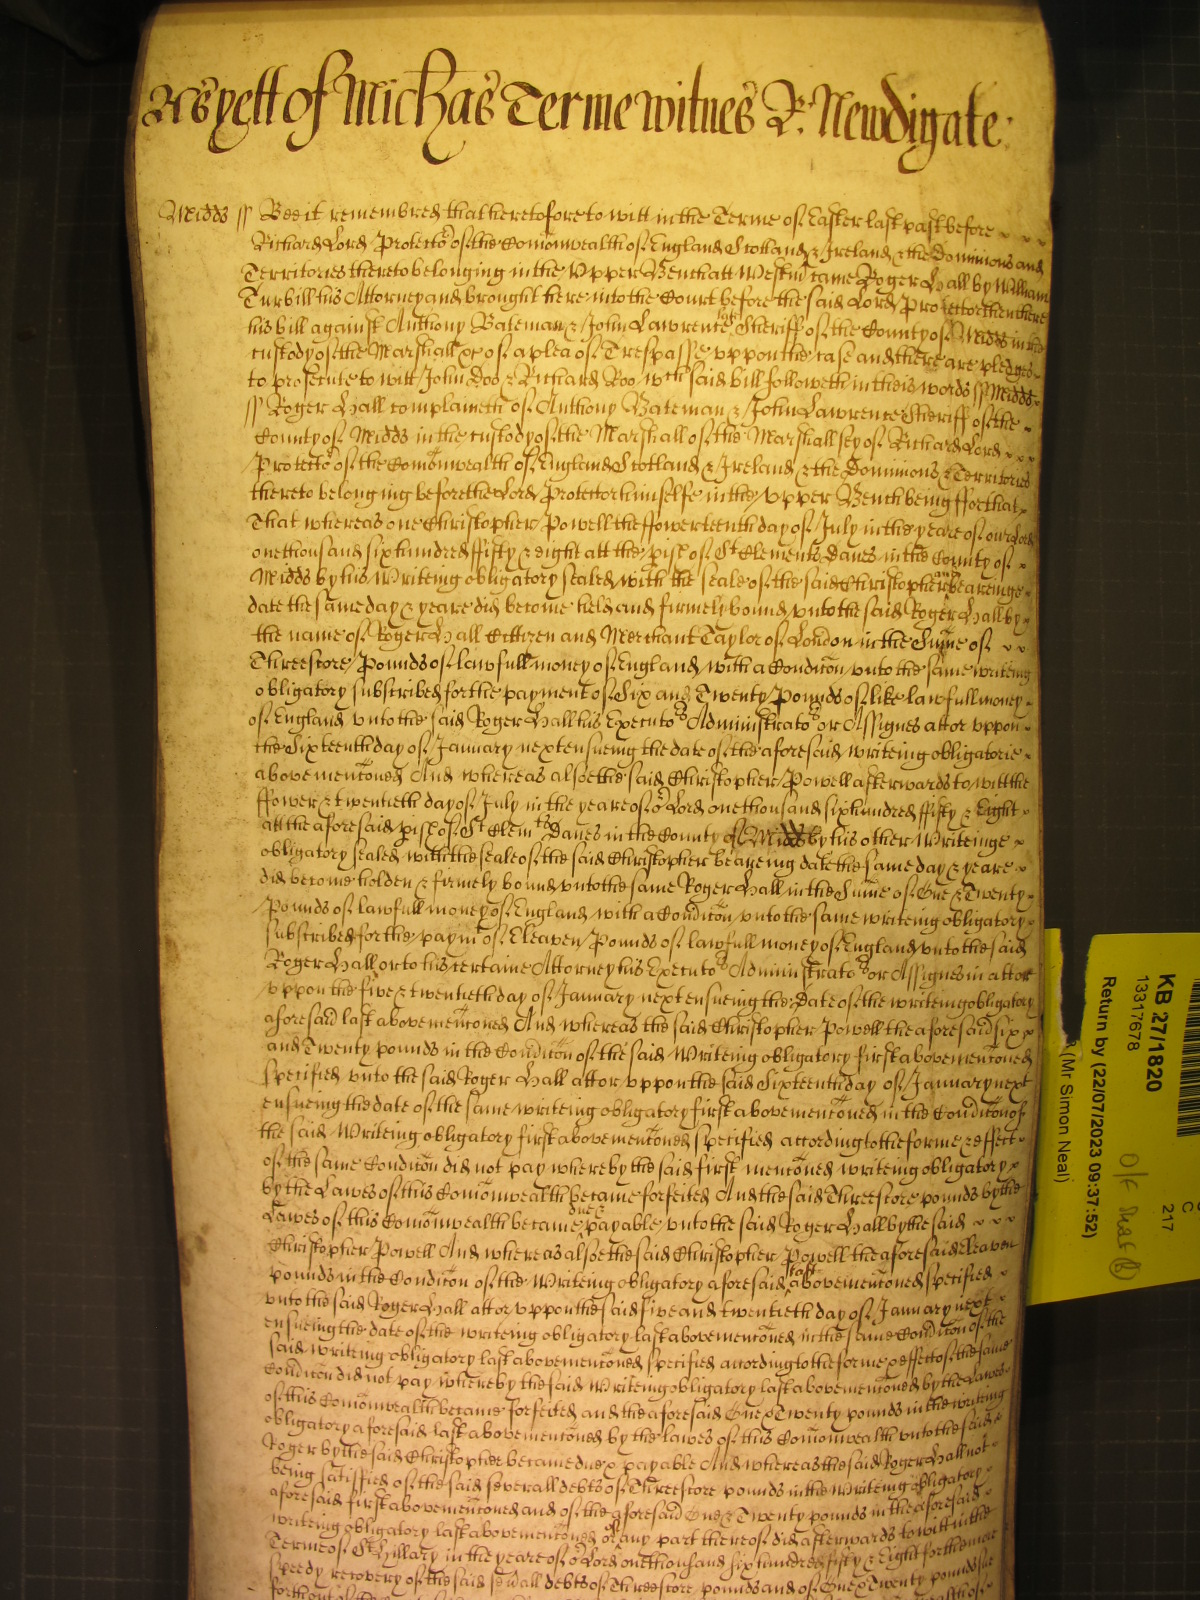 As yett of Michas Terme witnes R: Newdigate:
Midds ss Bee it remembred that heretofore to witt in the Terme of Easter last past before
Richard Lord Protector of the Comonwealth of England Scotland & Ireland & the Dominions and
Territories thereto belonging in the Vpper Bench att Westmr came Roger Hall by William
Turbill his Attorney and brought here into the Court before the said Lord Protector then there
his bill against Anthony Bateman & John Lawrence late Sheriff of the County of Midds in the
custody of the Marshall &c of a plea of Trespasse vppon the case and there are pledges
to prosecute to witt John Doo & Richard Roo wch said bill followeth in theis words ss Midds
ss Roger Hall complaineth of Anthony Bateman & John Lawrence Sheriff of the
County of Midds in the custody of the Marshall of the Marshallsey of Richard Lord
Protector of the Comonwealth of England Scotland & Ireland & the Dominions & Territories
thereto belonging before the Lord Protector himselfe in the vpper Bench being ffor that
That whereas one Christopher Powell the ffowerteenth day of July in the yeare of our Lord
one thousand six hundred ffifty & eight att the pish of St Clements Danes in the County of
Midds by his Writeing obligatory sealed with the seale of the said Christopher and beareinge
date the same day & yeare did become held and firmely bound vnto the said Roger Hall by
the name of Roger Hall Cittizen and Merchant Taylor of London in the Sume of
Threescore Pounds of lawfull money of England with a Condicon vnto the same writeing
obligatory subscribed for the payment of Six and Twenty Pounds of like lawfull money
of England vnto the said Roger Hall his Executors Administrators or Assignes att or vppon
the Sixteenth day of January next ensueing the date of the aforesaid writeing obligatorie
above menconed And whereas alsoe the said Christopher Powell afterwards to witt the
ffower & twentieth day of July in the yeare of or Lord one thousand six hundred ffifty & Eight
att the aforesaid pish of St Clemts Danes in the County of Midds by his other Writeinge
obligatory sealed with the seale of the said Christopher beareing date the same day & yeare
did become holden & firmely bound vnto the same Roger Hall in the Sume of One & Twenty
Pounds of lawfull money of England with a Condicon vnto the same writeing obligatory
subscribed for the paymt of Eleaven Pounds of lawfull money of England vnto the said
Roger Hall or to his certaine Attorney his Executors Administrators or Assignes in att or
vppon the five & twentieth day of January next ensueing the date of the writeing obligatory
aforesaid last above menconed And whereas the said Christopher Powell the aforesaid six
and Twenty pounds in the Condicon of the said Writeing obligatory first above menconed
specified vnto the said Roger Hall att or vppon the said Sixteenth day of January next
ensueing the date of the same writeing obligatory first above menconed in the Condicon of
the said Writeing obligatory first above menconed specified according to the forme & effect
of the same Condicon did not pay whereby the said first menconed writeing obligatory
by the Lawes of this Comonwealth became forfeited And the said Threescore pounds by the
Lawes of this Comonwealth became due & payable vnto the said Roger Hall by the said
Christopher Powell And whereas alsoe the said Christopher Powell the aforesaid eleaven
pounds in the Condicon of the Writeing obligatory aforesaid last above menconed specified
vnto the said Roger Hall att or vppon the said five and twentieth day of January next
ensueing the date of the writeing obligatory last above menconed in the same Condicon of the
said writeing obligatory last above menconed specified according to the forme & effect of the same
Condicon did not pay whereby the said Writeing obligatory last above menconed by the Lawes
of this Comonwealth became forfeited and the aforesaid One & Twenty pounds in the writeing
obligatory aforesaid last above menconed by the lawes of this Comonwealth vnto the said
Roger by the said Christopher became due & payable And whereas the said Roger Hall not
being satisfied of the said severall debts of Threescore pounds in the Writeing obligatory
aforesaid first above menconed and of the aforesaid One & Twenty pounds in the aforesaid
writeing obligatory last above menconed or any part thereof did afterwards to witt in the
Terme of St Hillary in the yeare of or Lord one thousand six hundred fifty & Eight for the more
speedy recovery of the said sevall debts of Threescore pounds and of One & Twenty pounds
KB 27/1820
13317678
Return by (22/07/2023 09:37:52)
(Mr Simon Neal)
C
217
O/F Shelf (B)